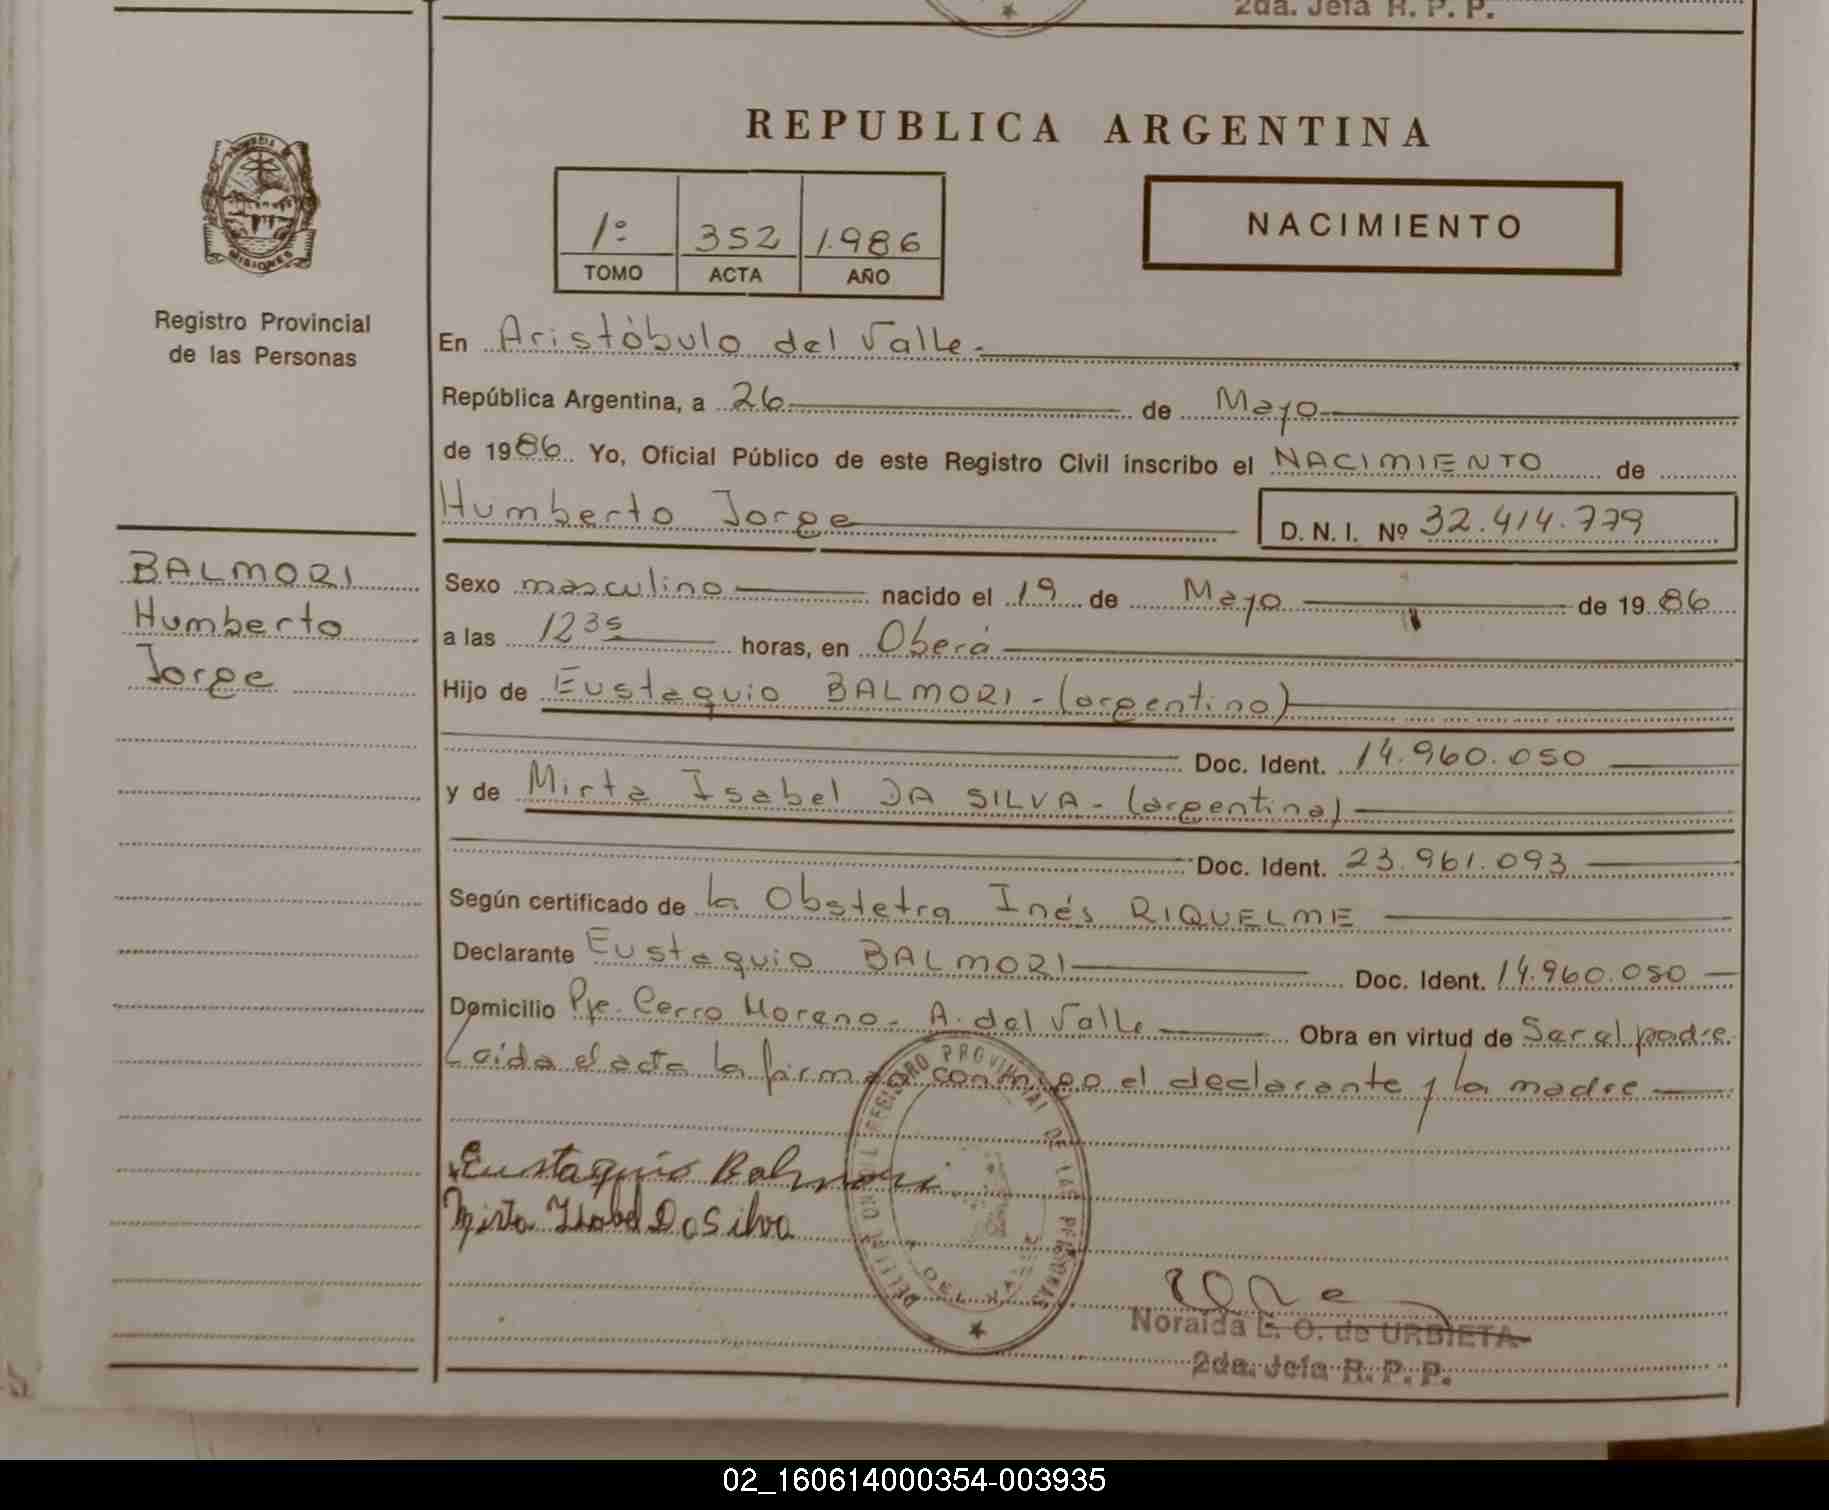 2da. Jefa R. P. P.
REPUBLICA ARGENTINA
1º 352 1.986
TOMO ACTA AÑO
NACIMIENTO
MISIONES
Registro Provincial
de las Personas
BALMORI
Humberto
Jorge
En Aristóbulo del Valle.-
República Argentina, a 26 de Mayo
de 1986 Yo, Oficial Público de este Registro Civil inscribo el NACIMIENTO de
Humberto Jorge D. N. I. Nº 32.414.779
Sexo masculino nacido el 19 de Mayo de 1986
a las 12 35 horas, en Oberá
Hijo de Eustaquio BALMORI - (argentino)
Doc. Ident. 14.960.050
y de Mirta Isabel DA SILVA - (argentina)
Doc. Ident. 23.961.093
Según certificado de la Obstetra Inés RIQUELME
Declarante Eustaquio BALMORI Doc. Ident. 14.960.050
Domicilio Pje. Cerro Moreno - A. del Valle Obra en virtud de Ser el padre.
Leída el acta la firman conmigo el declarante y la madre
REGISTRO PROVINCIAL DE LAS PERSONAS
DEL VALLE
Eustaquio Balmori
Mirta Isabel Da Silva
Noraida E. O. de URBIETA
2da. Jefa R. P. P.
02_160614000354-003935